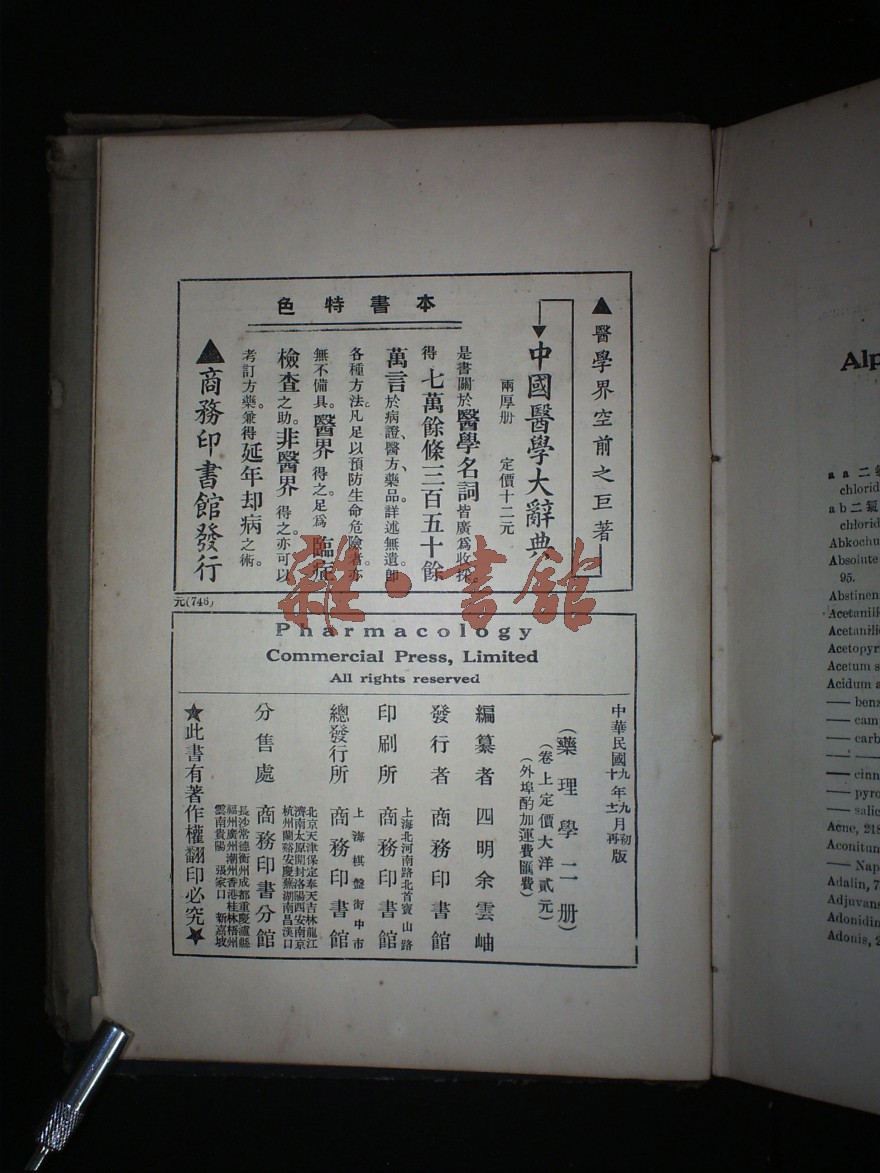 ▲醫學界空前之巨著
中國醫學大辭典
兩厚册 定價十二元
本書特色
是書關於醫學名詞皆廣爲收採
得七萬餘條三百五十餘
萬言於病證、醫方、藥品。詳述無遺。卽
各種方法。凡足以預防生命危險者。亦
無不備具。醫界得之。足爲臨症
檢查之助。非醫界得之。亦可以
考訂方藥。兼得延年却病之術。
▲商務印書館發行
元(746)
Pharmacology
Commercial Press, Limited
All rights reserved
中華民國九年九月初版
十十二再
(藥理學二册)
(卷上定價大洋貳元)
(外埠酌加運費匯費)
編纂者 四明余雲岫
發行者 商務印書館
印刷所 上海北河南路北首寶山路 商務印書館
總發行所 上海棋盤街中市 商務印書館
分售處 商務印書分館
北京天津保定奉天吉林龍江
濟南太原開封洛陽西安南京
杭州蘭谿安慶蕪湖南昌漢口
長沙常德衡州成都重慶瀘縣
福州廣州潮州香港桂林梧州
雲南貴陽 張家口 新嘉坡
★此書有著作權翻印必究★
雜·書館
Alp
a a 二氯
chlorid
a b 二氯
chlorid
Abkochu
Absolute
95.
Abstinen
Acetanili
Acetanilic
Acetopyr
Acetum s
Acidum a
— benz
— cam
— carb
— —
— cinn
— pyro
— salic
Acne, 218
Aconitum
— Nap
Adalin, 7
Adjuvans
Adonidin
Adonis, 2